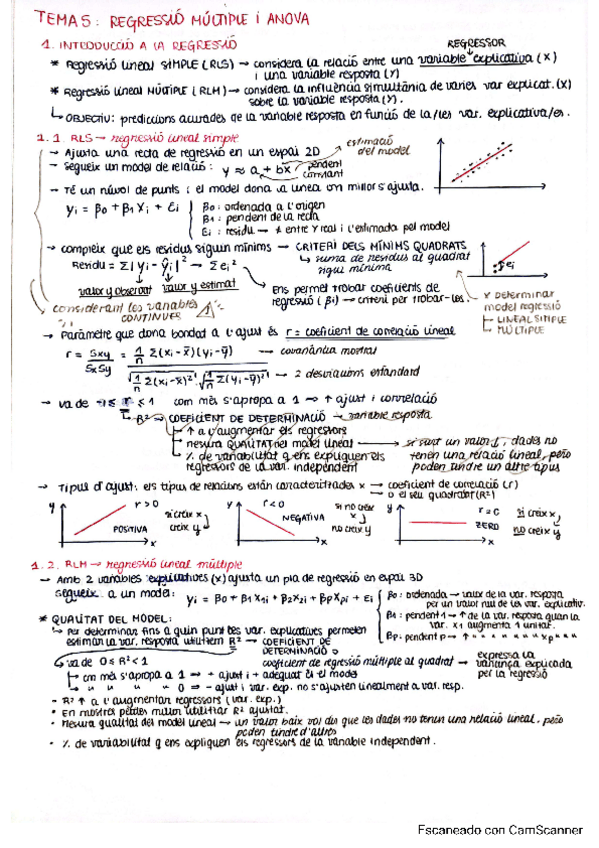 TEMA 5: REGRESSIÓ MÚLTIPLE i ANOVA
1. INTRODUCCIÓ A LA REGRESSIÓ
REGRESSOR
* Regressió lineal SIMPLE (RLS) → considera la relació entre una variable explicativa (X)
i una variable resposta (Y)
* Regressió lineal MÚLTIPLE (RLM) → considera la influència simultània de varies var explicat. (X)
sobre la variable resposta (Y).
↳ OBJECTIU: prediccions acurades de la variable resposta en funció de la/les var. explicativa/es.
1.1. RLS → regressió lineal simple
→ Ajusta una recta de regressió en un espai 2D
estimació del model
→ Segueix un model de relació: y ≈ a + bx
pendent
constant
→ Té un núvol de punts i el model dona la línea on millor s'ajusta.
yi = β0 + β1 Xi + εi
β0: ordenada a l'origen
β1: pendent de la recta
εi: residu → ≠ entre Y real i l'estimada pel model
→ compleix que els residus siguin mínims → CRITERI DELS MÍNIMS QUADRATS
↳ suma de residus al quadrat
sigui mínima
Residu = Σ|yi - ŷi|² → Σ ei²
valor observat
valor y estimat
Ens permet trobar coeficients de
regressió (βi) → criteri per trobar-los.
ei
Y Determinar
model regressió
LINEAL SIMPLE
MÚLTIPLE
considerant les variables
CONTINUES
→ Paràmetre que dona bondad a l'ajust és r = coeficient de correlació lineal
r = Sxy / Sx Sy = 1/n Σ(xi - x̄)(yi - ȳ) / √1/n Σ(xi - x̄)² √1/n Σ(yi - ȳ)²
→ covariància mostral
→ 2 desviacions estàndard
→ va de -1 ≤ r ≤ 1 com més s'apropa a 1 ⇒ ↑ ajust i correlació
↳ R² → COEFICIENT DE DETERMINACIÓ → variable resposta
↑ a l'augmentar els regressors
mesura QUALITAT del model lineal → si surt un valor ↓, dades no
tenen una relació lineal, però
poden tindre un altre tipus
% de variabilitat q ens expliquen els
regressors de la var. independent
→ Tipus d'ajust: els tipus de relacions están caracteritzades x → coeficient de correlació (r)
→ o el seu quadrat (R²)
y
r > 0
si creix x
creix y
POSITIVA
x
y
r < 0
si no creix
x
no creix y
NEGATIVA
x
y
r = 0
si creix x
no creix y
ZERO
x
1.2. RLM → regressió lineal múltiple
→ Amb 2 variables explicatives (x) ajusta un pla de regressió en espai 3D
segueix a un model: yi = β0 + β1 X1i + β2 X2i + βp Xpi + εi
β0: ordenada → valor de la var. resposta
per un valor nul de les var. explicativ.
β1: pendent 1 → ↑ de la var. resposta quan la
var. x1 augmenta 1 unitat.
βp: pendent p → ↑ " " " " " " xp " "
* QUALITAT DEL MODEL:
↳ Per determinar fins a quin punt les var. explicatives permeten
estimar la var. resposta utilitzem R² → COEFICIENT DE
DETERMINACIÓ o
coeficient de regressió múltiple al quadrat → expressa la
variança explicada
per la regressió
va de 0 ≤ R² < 1
→ com més s'apropa a 1 ⇒ + ajust i + adequat és el model
→ " " " " 0 ⇒ - ajust i var. exp. no s'ajusten linealment a var. resp.
- R² ↑ a l'augmentar regressors (var. exp.)
• En mostres petites millor utilitzar R² ajustat.
• Mesura qualitat del model lineal → un valor baix vol dir que les dades no tenen una relació lineal, però
poden tindre d'altres
• % de variabilitat q ens expliquen els regressors de la variable independent.
Escaneado con CamScanner